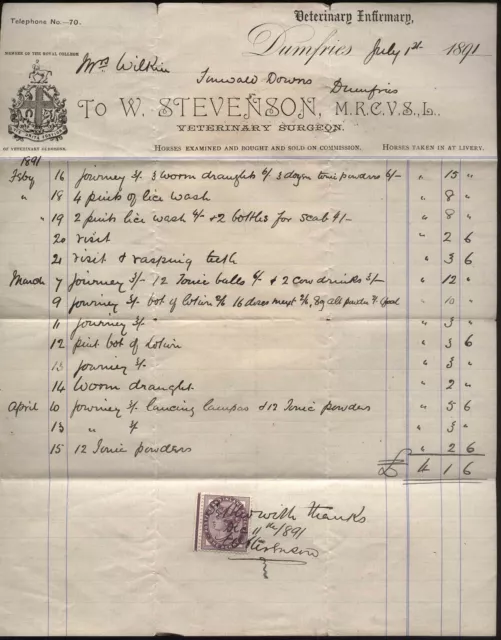 Telephone No.—70.
Veterinary Infirmary,
Dumfries July 1st 1891
MEMBER OF THE ROYAL COLLEGE
OF VETERINARY SURGEONS.
Mrs Wilkin
Tinwald Downs
Dumfries
To W. STEVENSON, M.R.C.V.S.,L.
VETERINARY SURGEON.
HORSES EXAMINED AND BOUGHT AND SOLD ON COMMISSION. HORSES TAKEN IN AT LIVERY.
1891
Feby 16 Journey 3/- 3 Worm draughts 6/- 3 dozen tonic powders 6/- " 15 "
" 18 4 pints of lice wash " 8 "
" 19 2 pints lice wash 4/- & 2 bottles for scab 4/- " 8 "
20 visit " 2 6
21 visit & rasping teeth " 3 6
March 7 Journey 3/- 12 Tonic balls 6/- & 2 Cow drinks 3/- " 12 "
9 Journey 3/- bot of lotion 16 doses " 10 "
11 Journey 3/- " 3 "
12 pint bot of lotion " 3 6
13 Journey 3/- " 3 "
14 Worm draught " 2 "
April 10 Journey 3/- lancing lampas & 12 Tonic powders " 5 6
13 " " 3 "
15 12 Tonic powders " 2 6
£ 4 1 6
with thanks
11th/891
Stevenson